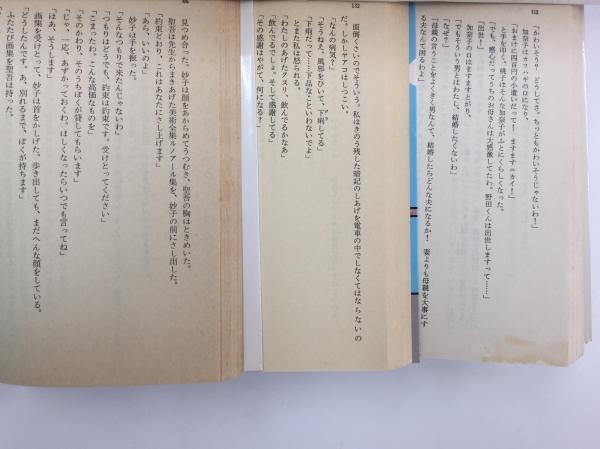 112
「かわいそうり　どうしてさ。ちっともかわいそうじゃないわ！」
加奈子はカッパヤの口になり、
「おまけに四百円の小遣いだって！　ますますニカイ！」
と手を叩く。桃子はそんな加奈子がふとにくらしくなった。
「でも、感心だってうちのお母さんは大感激してたわ。野田くんは出世しますって……」
「出世！」
加奈子の口はますますとがり、
「でもそういう男とはわたし、結婚したくないわ」
「なぜ？」
「母親の言うことをよくきく男なんて、結婚したらどんな夫になるか！　妻よりも母親を大事にす
る夫なんて困るわよ」
132
面倒くさいのでそういう。私はきのう残した暗記のしあげを電車の中でしなくてはならないの
だ。しかしヤアコはしつこい。
「なんの病気？」
「そうねえ。風邪をひいて、下痢してる」
「下痢だって。下品なこといわないでよ」
とまた私は怒られる。
「わたしのあげたクスリ、飲んでるかなあ」
「飲んでるでしょ。そして感謝してる」
「その感謝はやがて、何になる？」
見つめ合った。妙子は顔をあからめてうつむき、聖吾の胸はときめいた。
聖吾は先生からまきあげた美術全集ルノアール集を、妙子の前にさし出した。
「約束どおり、これはあなたにさし上げます」
「あら、いいのよ」
妙子は手を振った。
「そんなつもりで来たんじゃないわ」
「つもりはどうでも、約束は約束です。受けとってください」
「こまったわ。こんな高価なものを」
「そのかわり、そのうちぼくが貸してもらいます」
「じゃ、一応、あずかっておくわ。ほしくなったらいつでも言ってね」
「はあ、そうします」
画集を受けとって、妙子は首をかしげた。歩き出しても、まだへんな顔をしている。
「どうしたんです。あ、別れるまで、ぼくが持ちます」
ふたたび画集を聖吾は持った。